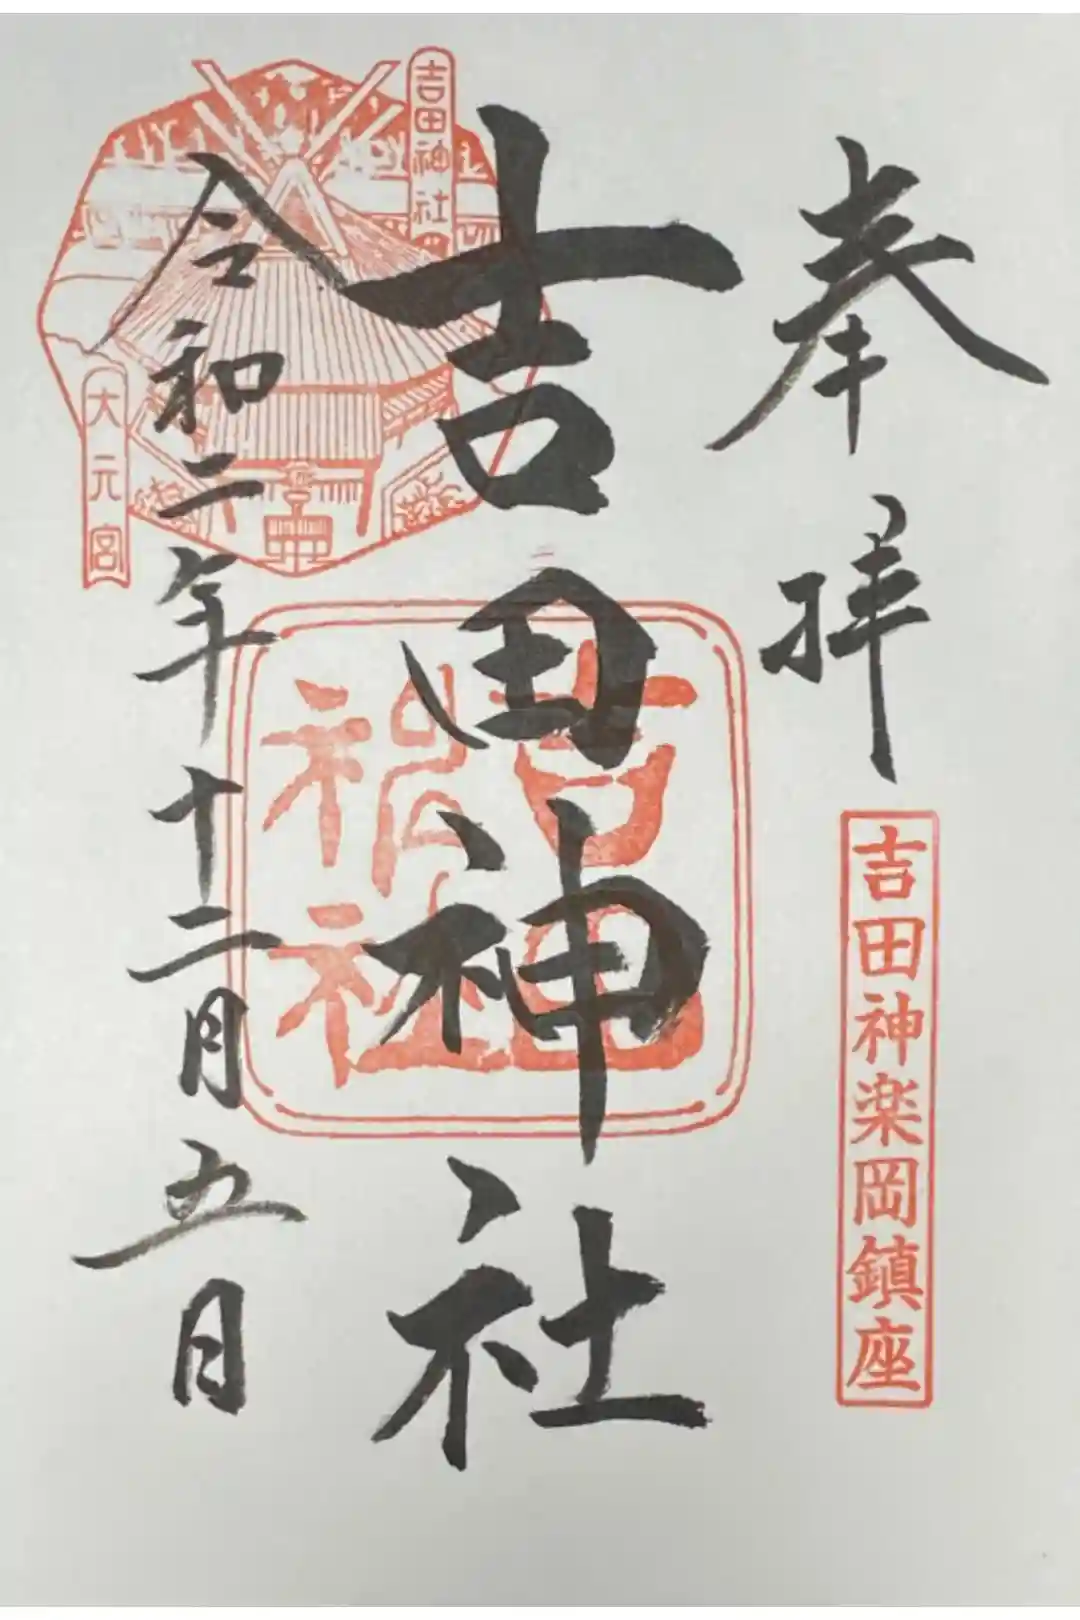 奉拝
吉田神楽岡鎮座
吉田神社
吉田神社
吉田神社
令和二年十二月五日
大元宮